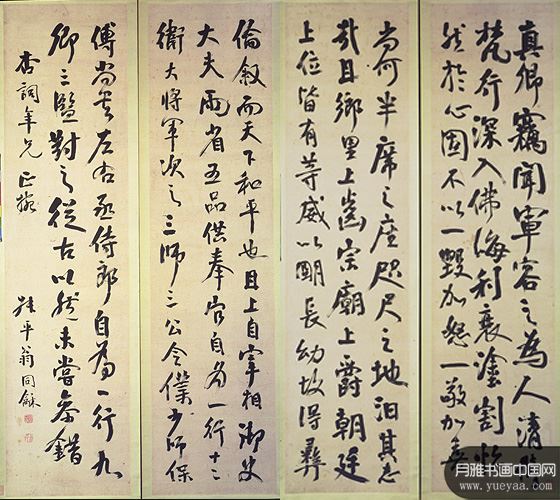 真卿竊聞軍容之為人清修
梵行深入佛海利衰塗割恬
然於心固不以一毀加怒一敬加喜
尚何半席之座咫尺之地汨其志
哉且鄉里上齒宗廟上爵朝廷
上位皆有等威以明長幼故得彝
倫敘而天下和平也且上自宰相御史
大夫兩省五品供奉官自為一行十二
衛大將軍次之三師三公令僕少師保
傅尚書左右丞侍郎自為一行九
卿三監對之從古以然未嘗參錯
杏詞年兄正
叔平翁同龢
月雅书画中国网
www.yueyaa.com